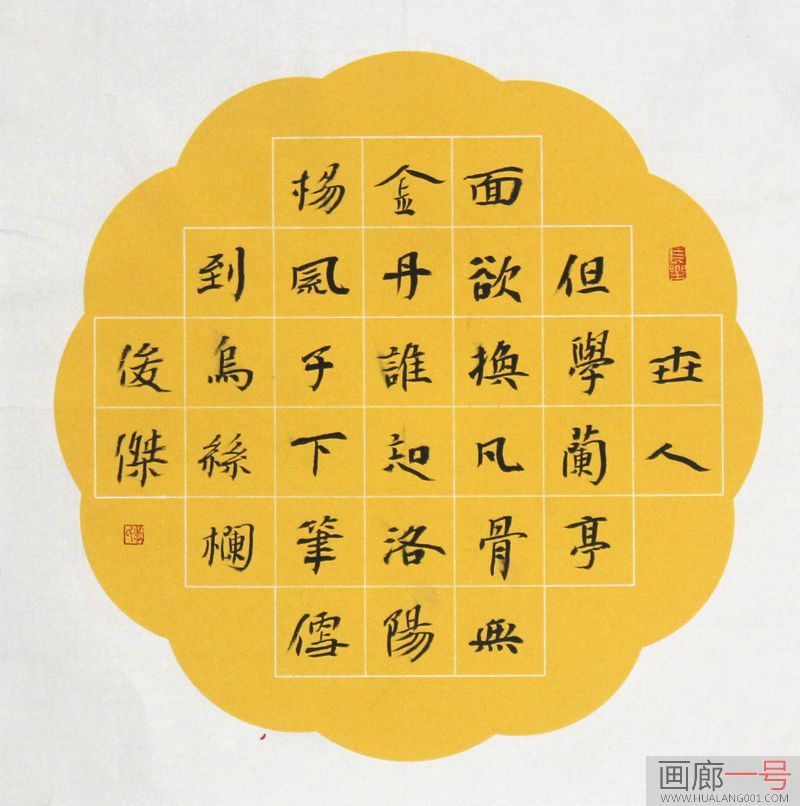 世人
但學蘭亭
面欲換凡骨無
金丹誰知洛陽
楊風子下筆
到烏絲欄
俊傑
画廊一号
WWW.HUALANG001.COM